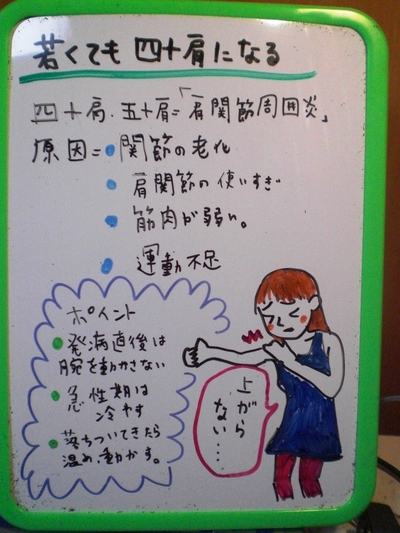 若くても 四十肩になる
四十肩・五十肩=「肩関節周囲炎」
原因=●関節の老化
●肩関節の使いすぎ
●筋肉が弱い。
●運動不足
ポイント
●発病直後は
腕を動かさない
●急性期は
冷やす
●落ちついてきたら
温め、動かす。
上がら
ない……